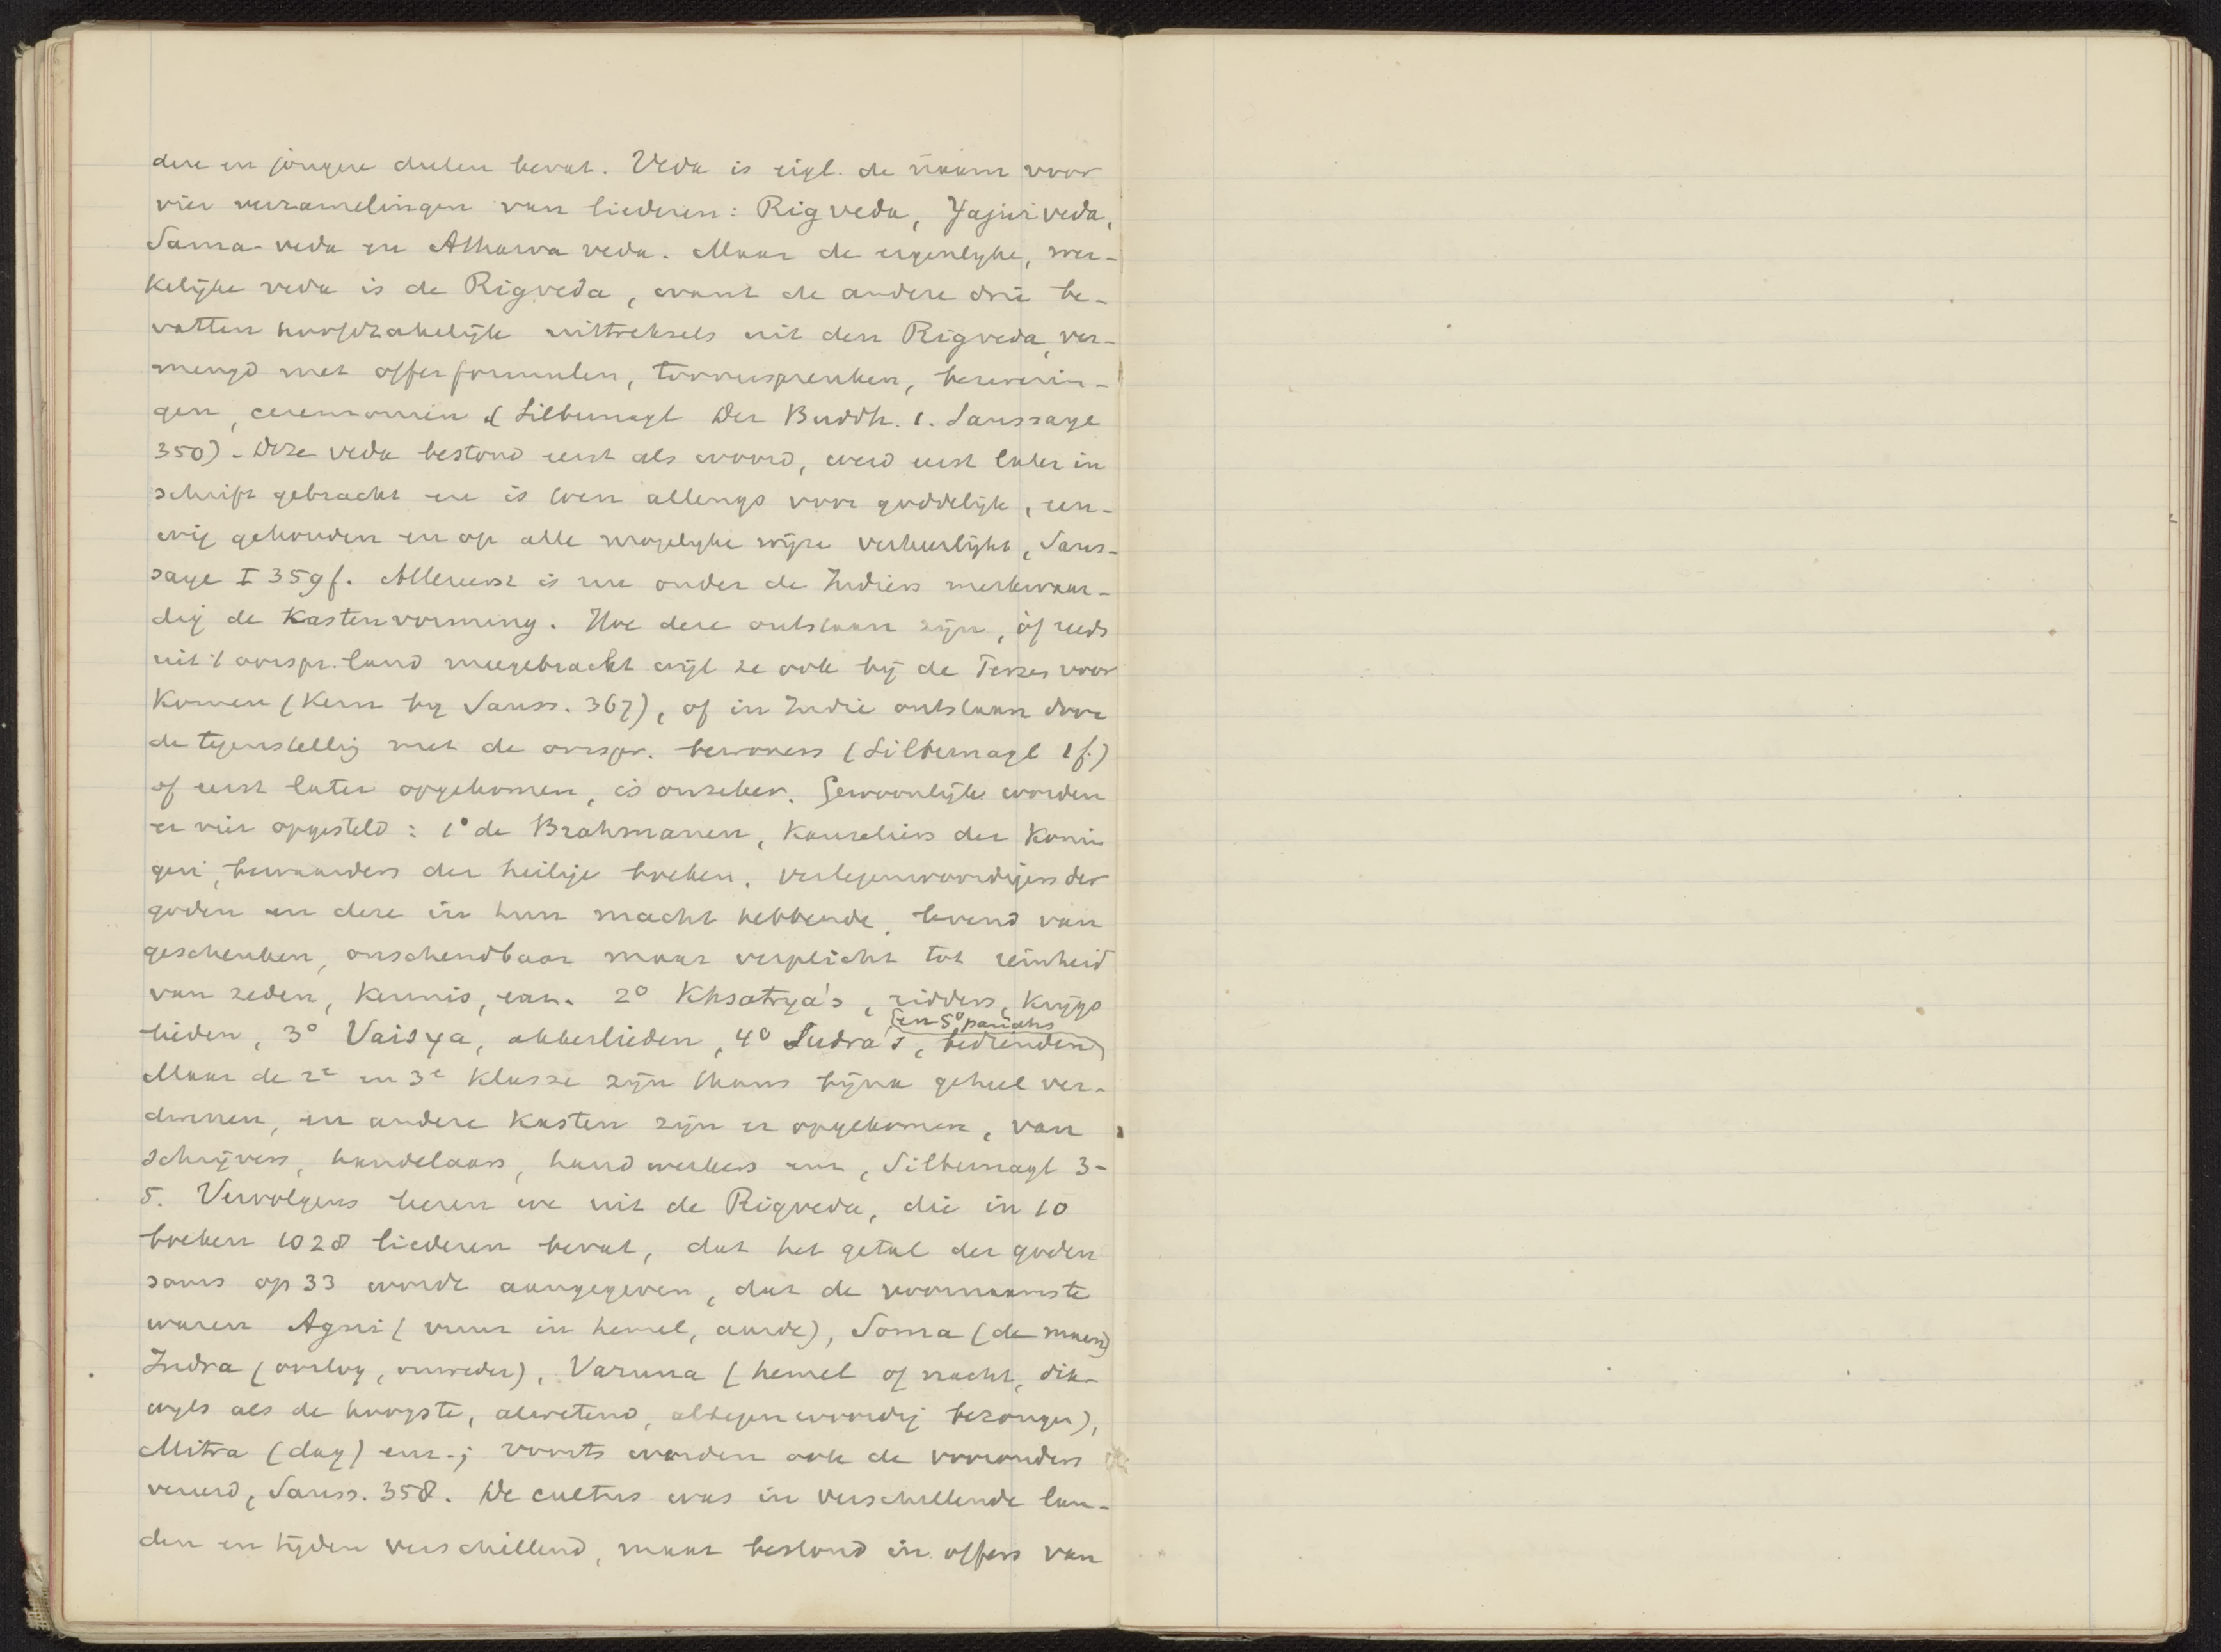 dere en jongere deelen bevat. Veda is eigl. de naam voor
vier verzamelingen van liederen: Rigveda, Yajurveda,
Sama-veda en Atharva veda. Maar de eigenlyke, wer-
kelijke veda is de Rigveda, want de andere drie be-
vatten hoofdzakelijk uittreksels uit den Rigveda, ver-
mengd met offerformulen, tooverspreuken, bezwerin-
gen, ceremoniën (Silbernagl Der Buddh. 1. Saussaye
350). Deze veda bestond eerst als woord, werd eerst later in
schrift gebracht en is toen allengs voor goddelijk, eeu-
wig gehouden en op alle mogelyke wijze verheerlijkt, Saus-
saye I 359f. Allereerst is nu onder de Indiërs merkwaar-
dig de Kastenvorming. Hoe deze ontstaan zijn, òf reeds
uit 't oorspr. land meegebracht wijl ze ook bij de Perzen voor
komen (Kern by Sauss. 367), of in Indie ontstaan door
de tegenstellig met de oorspr. bewoners (Silbernagl 1f.)
of eerst later opgekomen, is onzeker. Gewoonlijk worden
er vier opgesteld: 1° de Brahmanen, kanseliers der konin
gen, bewaarders der heilige boeken, vertegenwoordigers der
goden en deze in hun macht hebbende, levend van
geschenken, onschendbaar maar verplicht tot reinheid
van zeden, kennis, enz. 2° Khsatrya's, ridders, krijgs
lieden, 3° Vaisya, akkerlieden, 4° Sudra's, bedienden
(en 5° pariahs)
Maar de 2e en 3e klasse zijn thans bijna geheel ver-
dwenen, en andere kasten zijn er opgekomen, van
schrijvers, handelaars, handwerkers enz, Silbernagl 3-
5. Vervolgens leeren we uit de Rigveda, die in 10
boeken 1028 liederen bevat, dat het getal der goden
soms op 33 wordt aangegeven, dat de voornaamste
waren Agni (vuur in hemel, aarde), Soma (de maan)
Indra (oorlog, onweder), Varuna (hemel of nacht, dik-
wyls als de hoogste, alwetend, altegenwoordig bezongen),
Mitra (dag) enz.; voorts worden ook de voorouders
vereerd, Sauss. 358. De cultus was in verschillende lan-
den en tijden verschillend, maar bestond in offers van